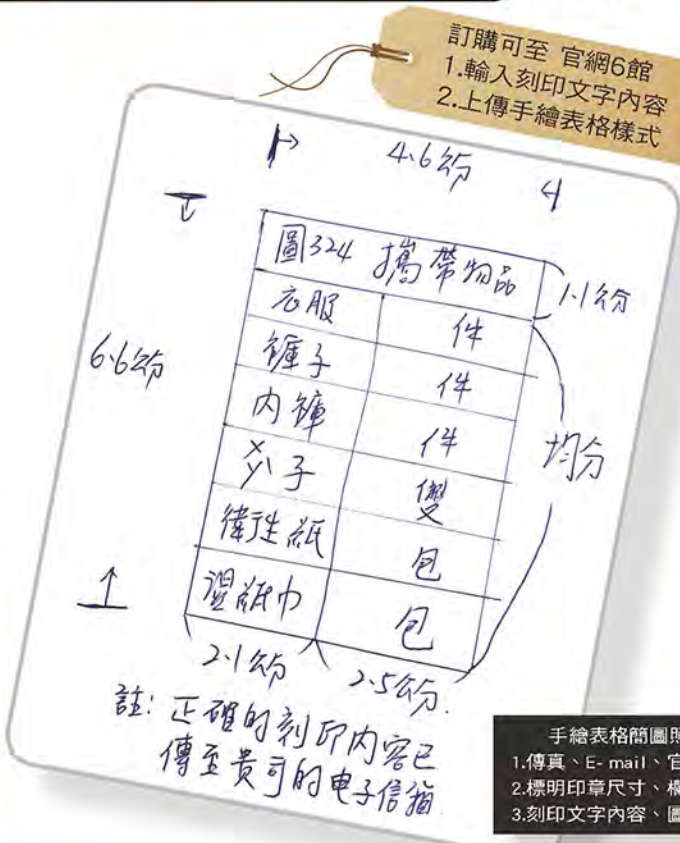 訂購可至 官網6館
1.輸入刻印文字內容
2.上傳手繪表格樣式
4.6公分
圖324 攜帶物品
1.1公分
衣服 件
褲子 件
6.6公分
內褲 件
均分
子 雙
衛生紙 包
溼紙巾 包
2.1公分 2.5公分.
註: 正確的刻印內容已
傳至貴司的电子信箱
手繪表格簡圖照
1.傳真、E-mail、官
2.標明印章尺寸、欄
3.刻印文字內容、圖